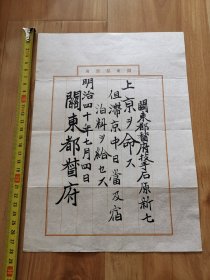 關東都督府技手石原新七
上京ヲ命ス
但滞京中日當及宿
泊料ヲ給セス
明治四十年七月四日
關東都督府